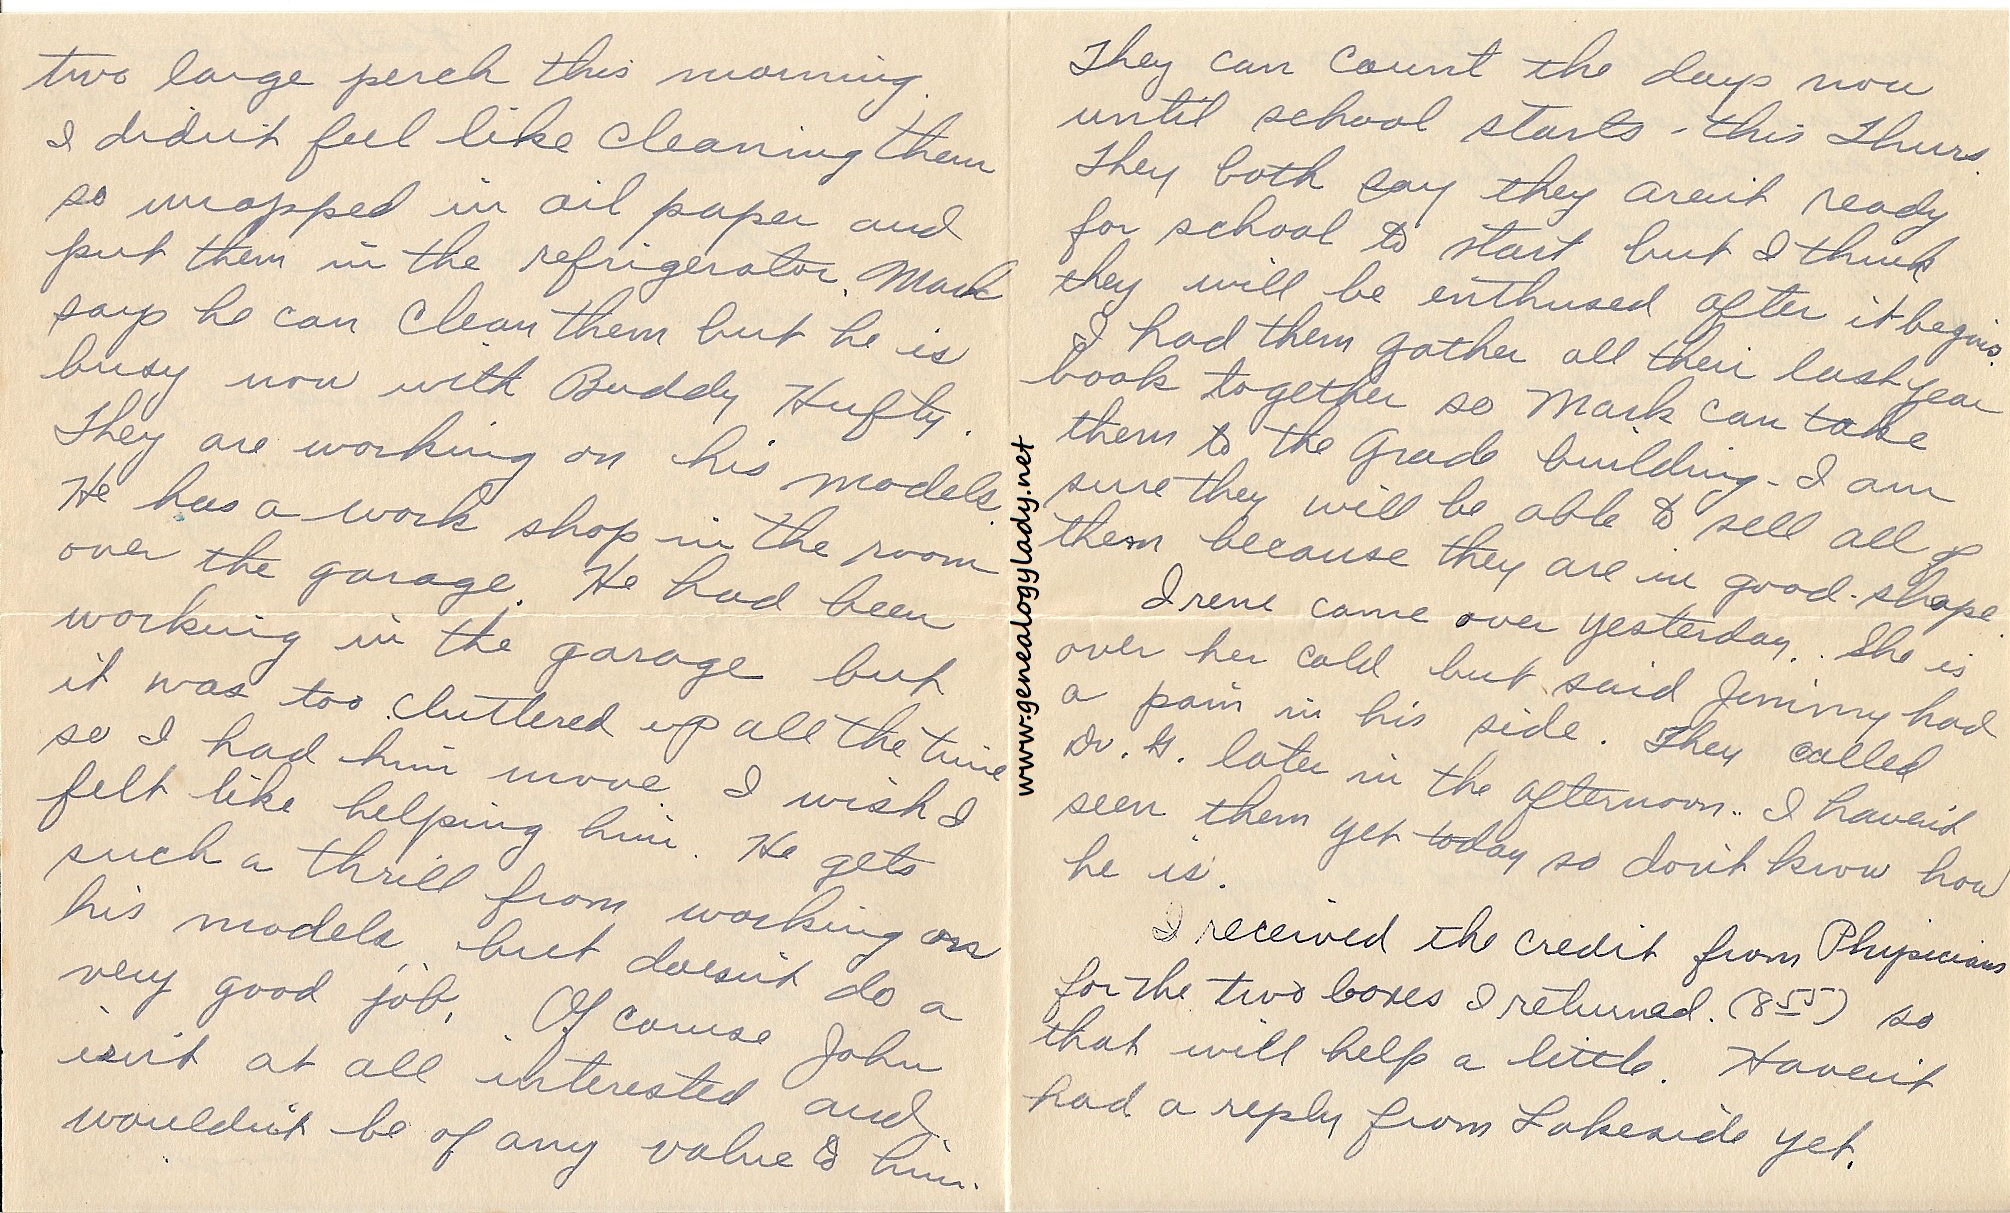 two large perch this morning.
I didn't feel like cleaning them
so wrapped in oil paper and
put them in the refrigerator. Mark
says he can clean them but he is
busy now with Buddy Hufty.
They are working on his models.
He has a work shop in the room
over the garage. He had been
working in the garage but
it was too cluttered up all the time
so I had him move. I wish I
felt like helping him. He gets
such a thrill from working on
his models, but doesn't do a
very good job. Of course John
isn't at all interested and
wouldn't be of any value to him.
They can count the days now
until school starts - this Thurs.
They both say they aren't ready
for school to start but I think
they will be enthused after it begins.
I had them gather all their last year
book together so Mark can take
them to the Grade building - I am
sure they will be able to sell all of
them because they are in good shape.
Irene came over yesterday. She is
over her cold but said Jimmy had
a pain in his side. They called
Dr. G. later in the afternoon.. I haven't
seen them yet today so don't know how
he is.
I received the credit from Physicians
for the two boxes I returned. (8 55) so
that will help a little. Haven't
had a reply from Lakeside yet.
www.genealogylady.net